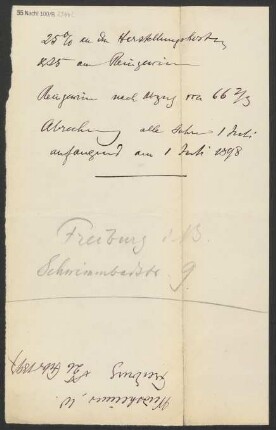 55 Nachl 100/B
25 % an den Herstellungskosten
& 25 am Reingewinn
Reingewinn nach Abzug von 66 2/3
Abrechnung alle Jahre 1 Juli
anfangend am 1 Juli 1898
Freiburg i. B.
Schwimmbadstr. 9.
Freiburg 26 Feb 1897